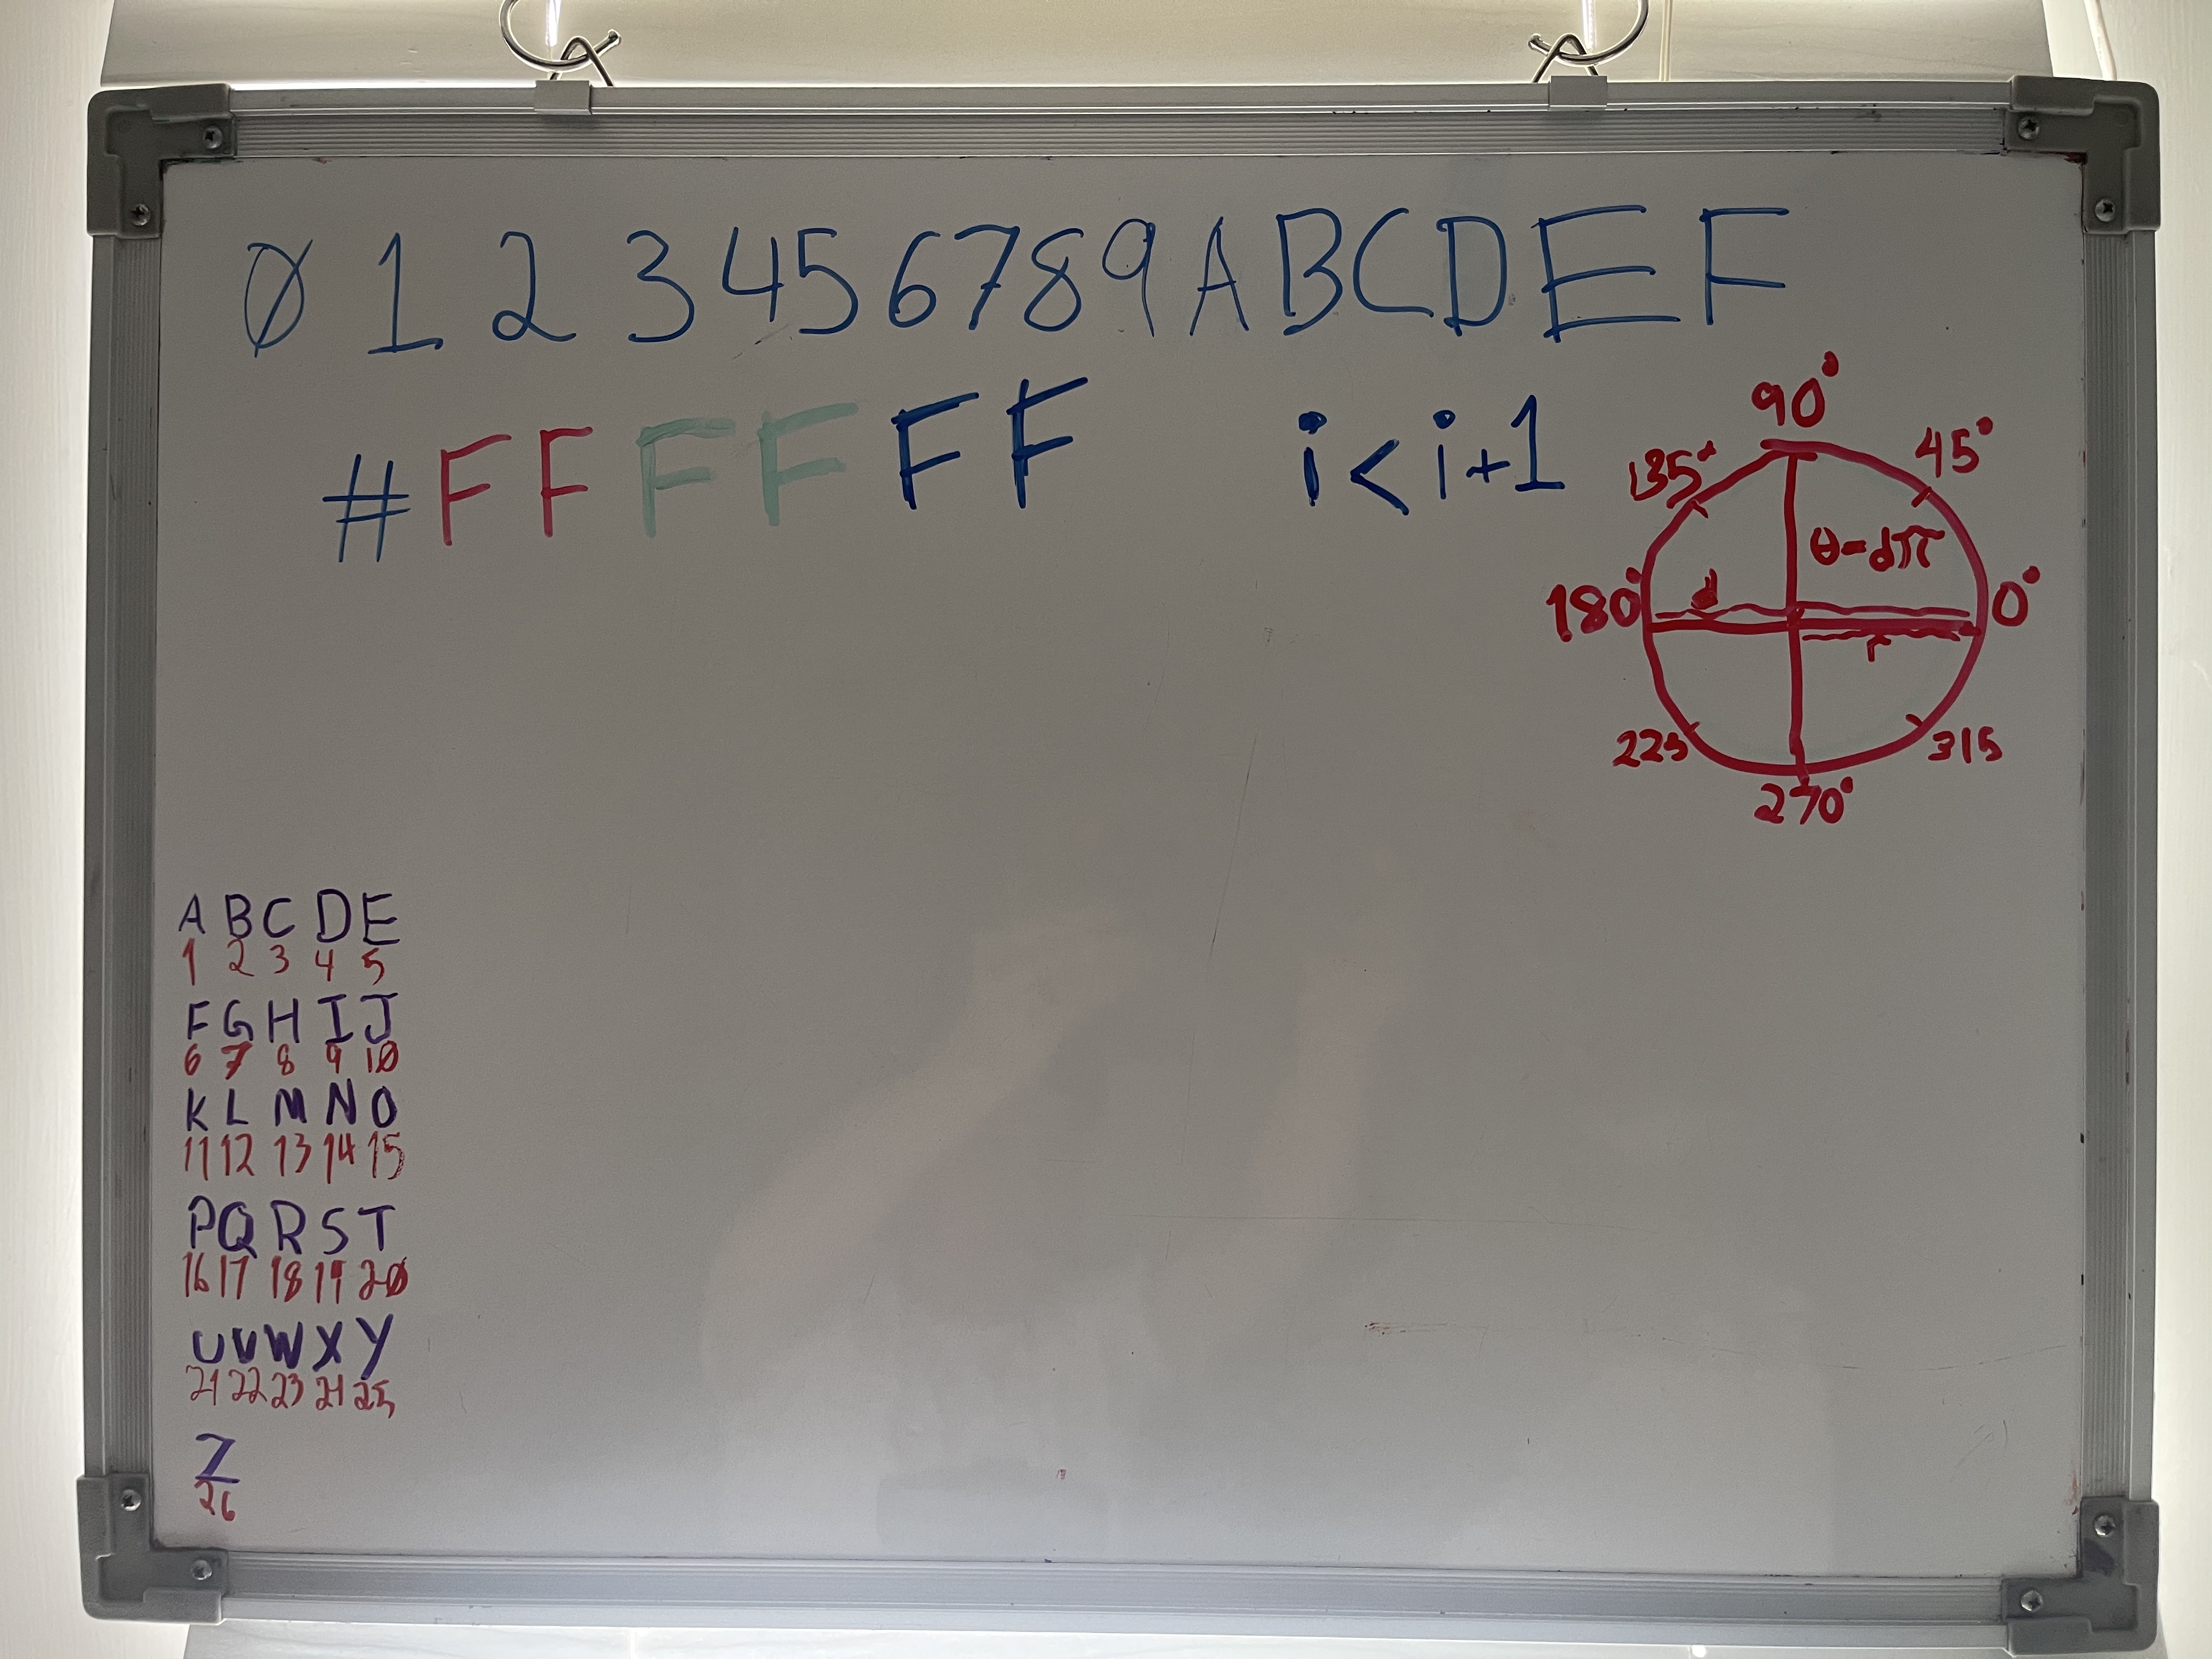 0 1 2 3 4 5 6 7 8 9 A B C D E F
#FFFFFF
i < i+1
90°
135°
45°
θ=dπ
180°
d
0°
r
225
315
270°
A B C D E
1 2 3 4 5
F G H I J
6 7 8 9 10
K L M N O
11 12 13 14 15
P Q R S T
16 17 18 19 20
U V W X Y
21 22 23 24 25
Z
26